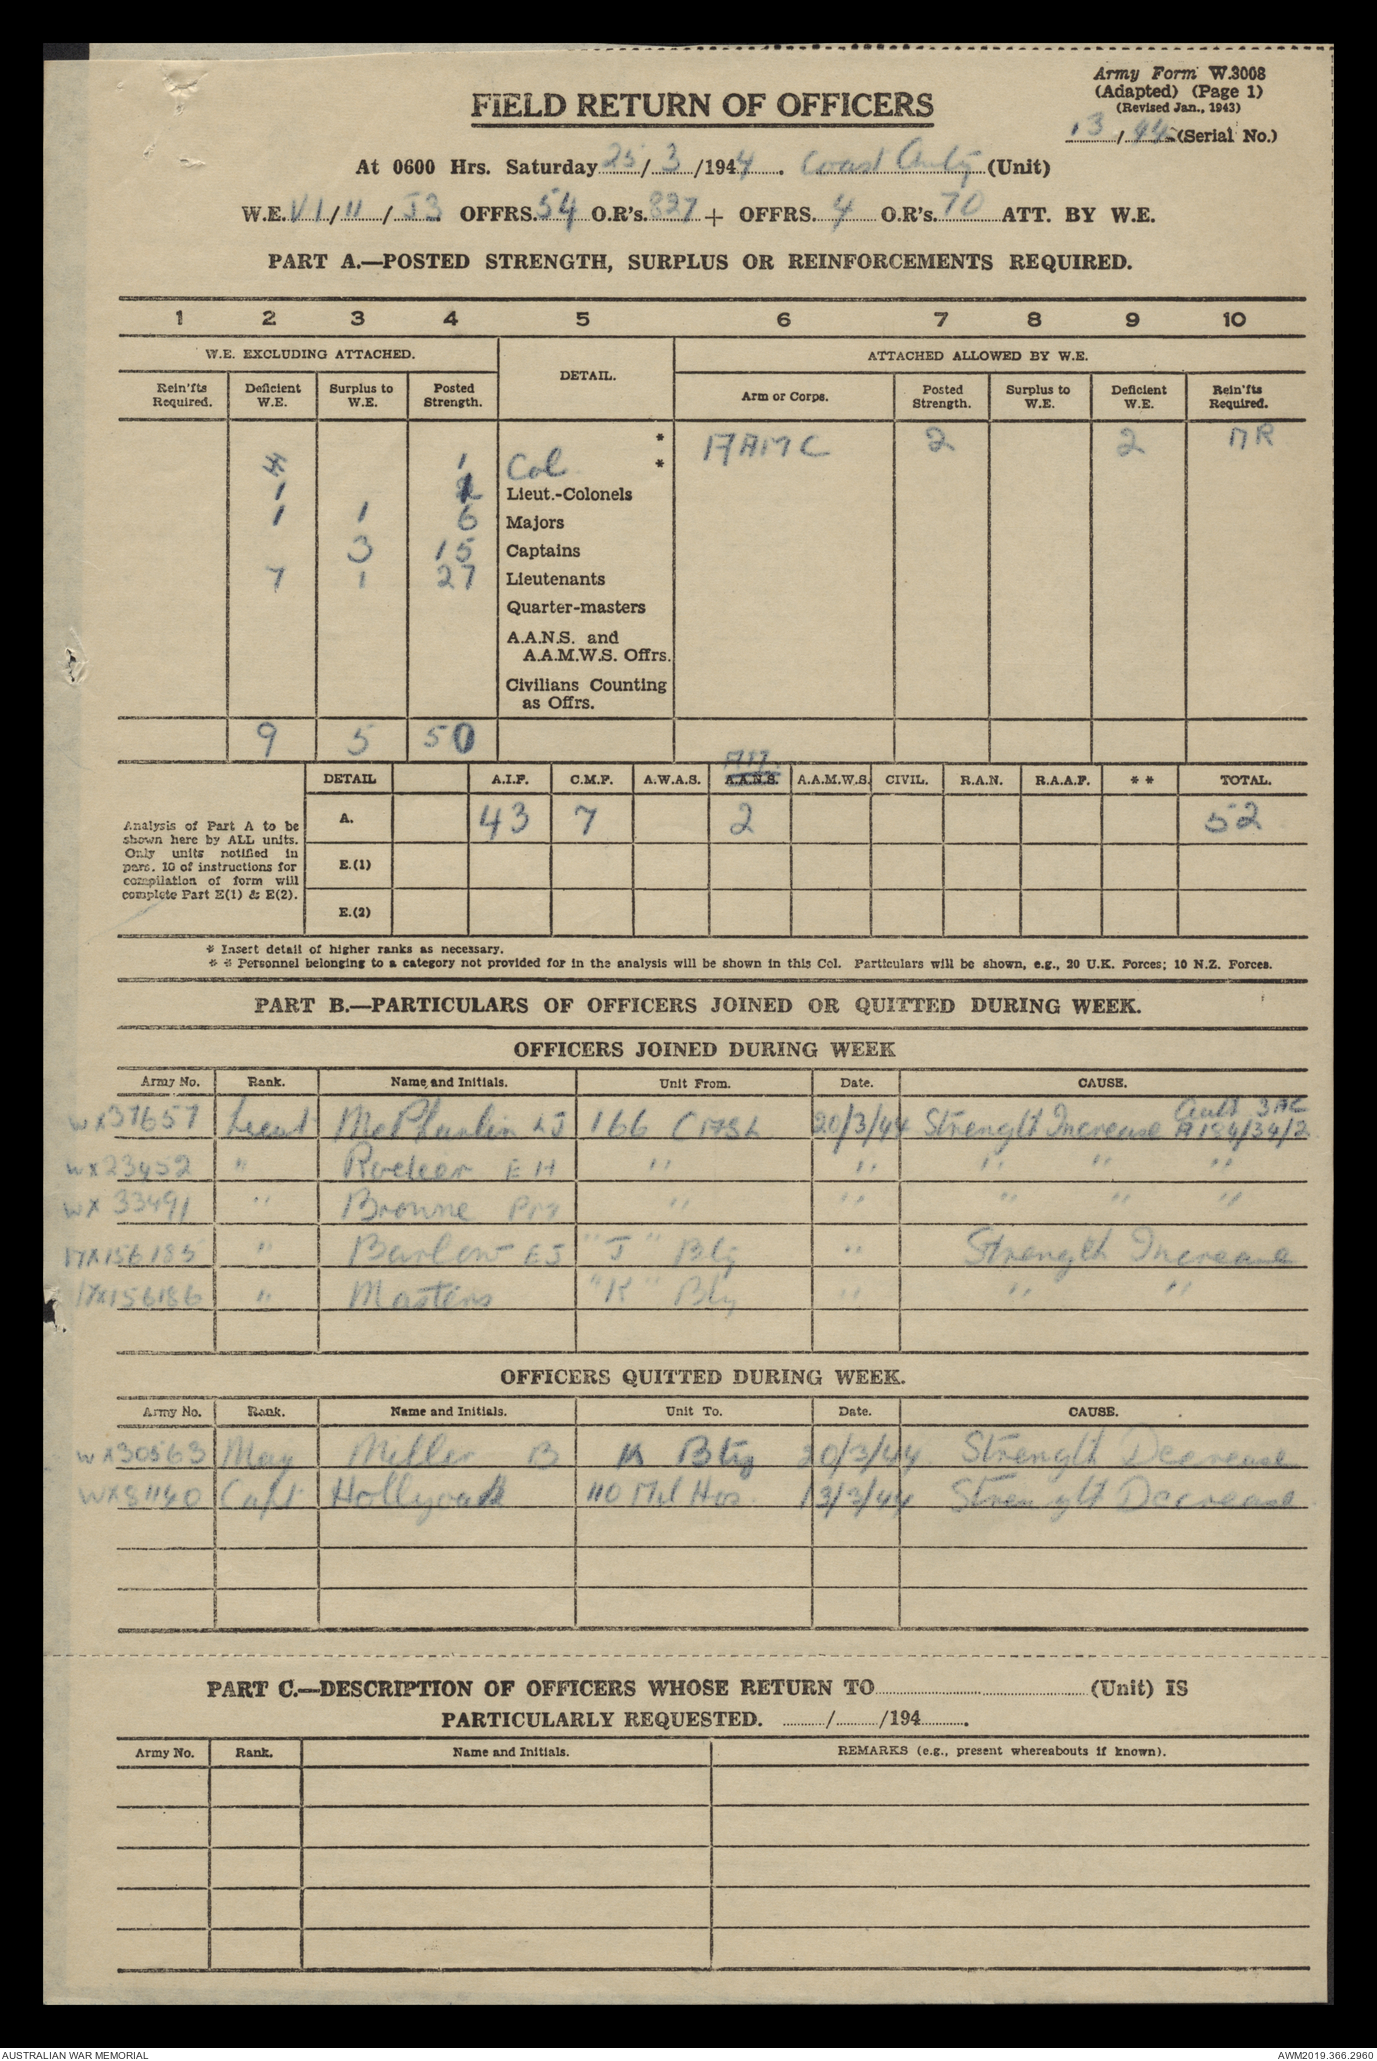 Army Form W.3008
(Adapted) (Page 1)
(Revised Jan., 1943)
13/44 (Serial No.)
FIELD RETURN OF OFFICERS
At 0600 Hrs. Saturday 25/3/1944. Coast Arty (Unit)
W.E. VI/11/J3 OFFRS. 54 O.R's. 827 + OFFRS. 4 O.R's. 70 ATT. BY W.E.
PART A.—POSTED STRENGTH, SURPLUS OR REINFORCEMENTS REQUIRED.
1 2 3 4 5 6 7 8 9 10
W.E. EXCLUDING ATTACHED. DETAIL. ATTACHED ALLOWED BY W.E.
Rein'fts Required. Deficient W.E. Surplus to W.E. Posted Strength. Arm or Corps. Posted Strength. Surplus to W.E. Deficient W.E. Rein'fts Required.
* AAMC 2 2 NR
1 Col *
1 Lieut.-Colonels
1 1 6 Majors
3 15 Captains
7 1 27 Lieutenants
Quarter-masters
A.A.N.S. and
A.A.M.W.S. Offrs.
Civilians Counting
as Offrs.
9 5 50
DETAIL A.I.F. C.M.F. A.W.A.S. A.A.N.S. A.A.M.W.S. CIVIL. R.A.N. R.A.A.F. * * TOTAL.
A. 43 7 2 52
E.(1)
E.(2)
Analysis of Part A to be
shown here by ALL units.
Only units notified in
para. 10 of instructions for
compilation of form will
complete Part E(1) & E(2).
* Insert detail of higher ranks as necessary.
* * Personnel belonging to a category not provided for in the analysis will be shown in this Col. Particulars will be shown, e.g., 20 U.K. Forces; 10 N.Z. Forces.
PART B.—PARTICULARS OF OFFICERS JOINED OR QUITTED DURING WEEK.
OFFICERS JOINED DURING WEEK
Army No. Rank. Name and Initials. Unit From. Date. CAUSE.
WX37657 Lieut McPharlin LJ 166 CASL 20/3/44 Strength Increase Auth 3AC A184/34/2
WX23452 " EH " " " " "
WX33491 " Browne " " " " "
" Barlow EJ "J" Bty " Strength Increase
" Masters "K" Bty " " "
OFFICERS QUITTED DURING WEEK.
Army No. Rank. Name and Initials. Unit To. Date. CAUSE.
WX30563 Maj Miller B K Bty 20/3/44 Strength Decrease
Capt Hollyoak 110 Mil Hos 13/3/44 Strength Decrease
PART C.—DESCRIPTION OF OFFICERS WHOSE RETURN TO (Unit) IS
PARTICULARLY REQUESTED. / /194 .
Army No. Rank. Name and Initials. REMARKS (e.g., present whereabouts if known).
AUSTRALIAN WAR MEMORIAL AWM2019.366.2960